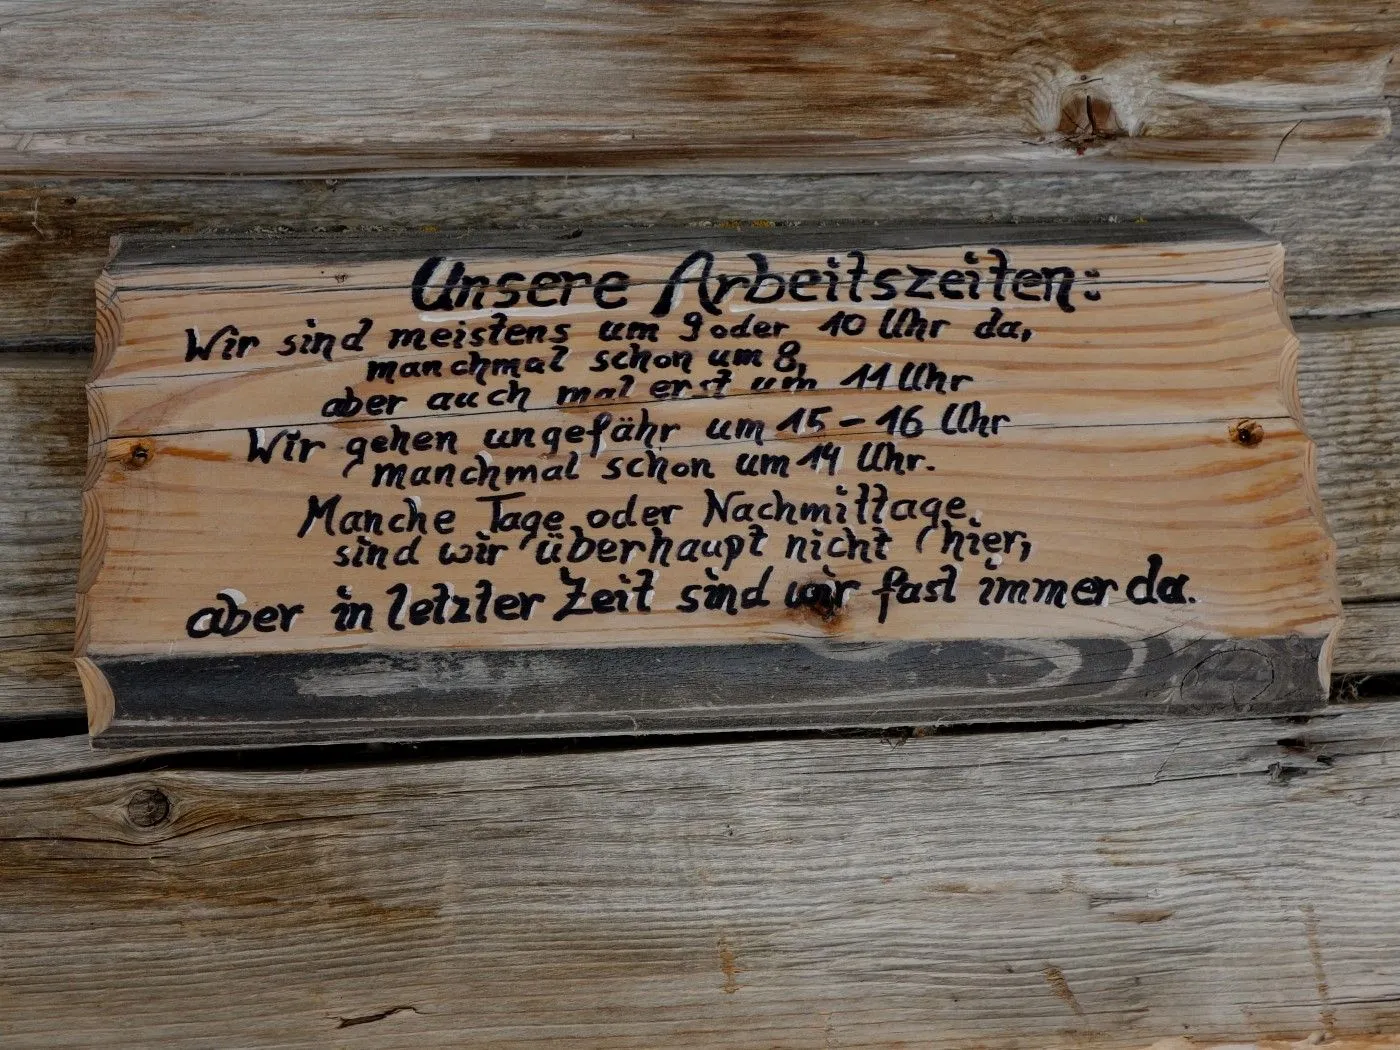 Unsere Arbeitszeiten:
Wir sind meistens um 9 oder 10 Uhr da,
manchmal schon um 8,
aber auch mal erst um 11 Uhr
Wir gehen ungefähr um 15 - 16 Uhr
manchmal schon um 14 Uhr.
Manche Tage oder Nachmittage
sind wir überhaupt nicht hier,
aber in letzter Zeit sind wir fast immer da.